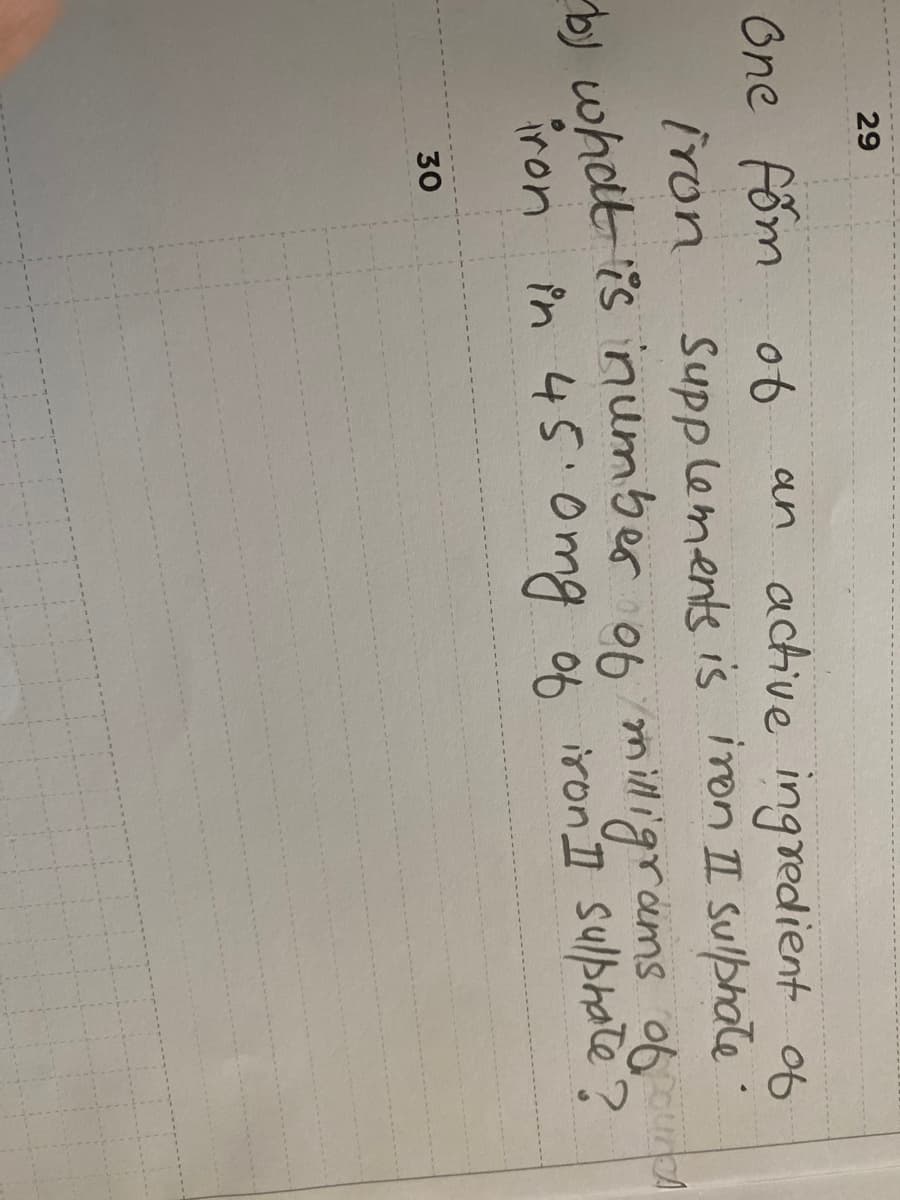 29
One form of an active ingredient of
iron supplements is iron II sulphate.
b) what is number of milligrams of
iron in 45.0mg of iron II sulphate?
30